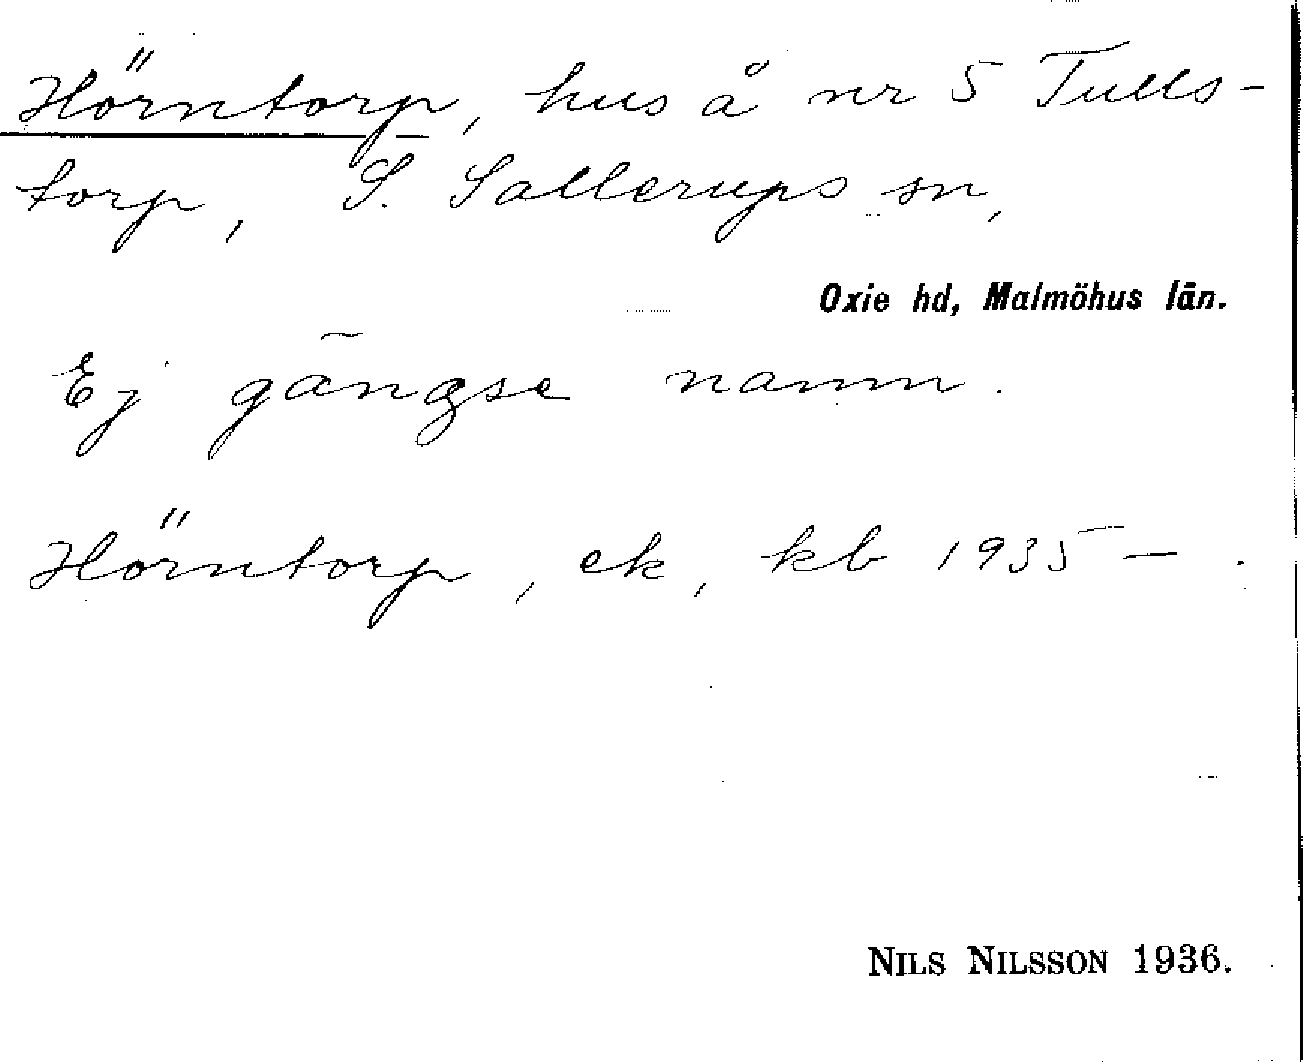 Hörntorp, hus å nr 5 Tulls-
torp, S. Sallerups sn,
Oxie hd, Malmöhus län.
Ej gängse namn.
Hörntorp, ek, kb 1935 – .
NILS NILSSON 1936.